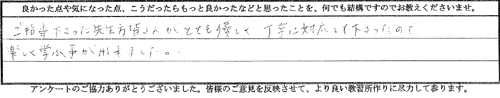 良かった点や気になった点、こうだったらもっと良かったなどと思ったことを、何でも結構ですのでお教えくださいませ。
ご指導下さった先生方皆さんがとても優しく丁寧に対応して下さったので
楽しく学ぶ事が出来ました。
アンケートのご協力ありがとうございました。皆様のご意見を反映させて、より良い教習所作りに尽力して参ります。